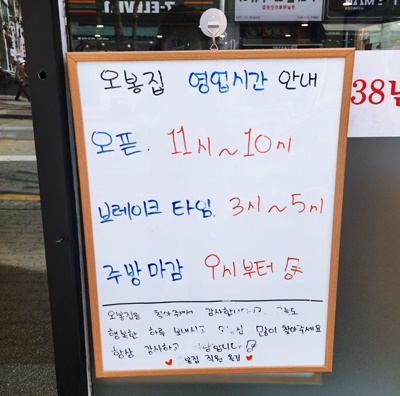 7-ELEVEN
오봉집 영업시간 안내
38년
오픈. 11시~10시
브레이크 타임. 3시~5시
주방마감 9시부터
오봉집을 찾아주셔서 감사합니다
행복한 하루 보내시고 많이 찾아주세요
항상 감사하고
직원 일동